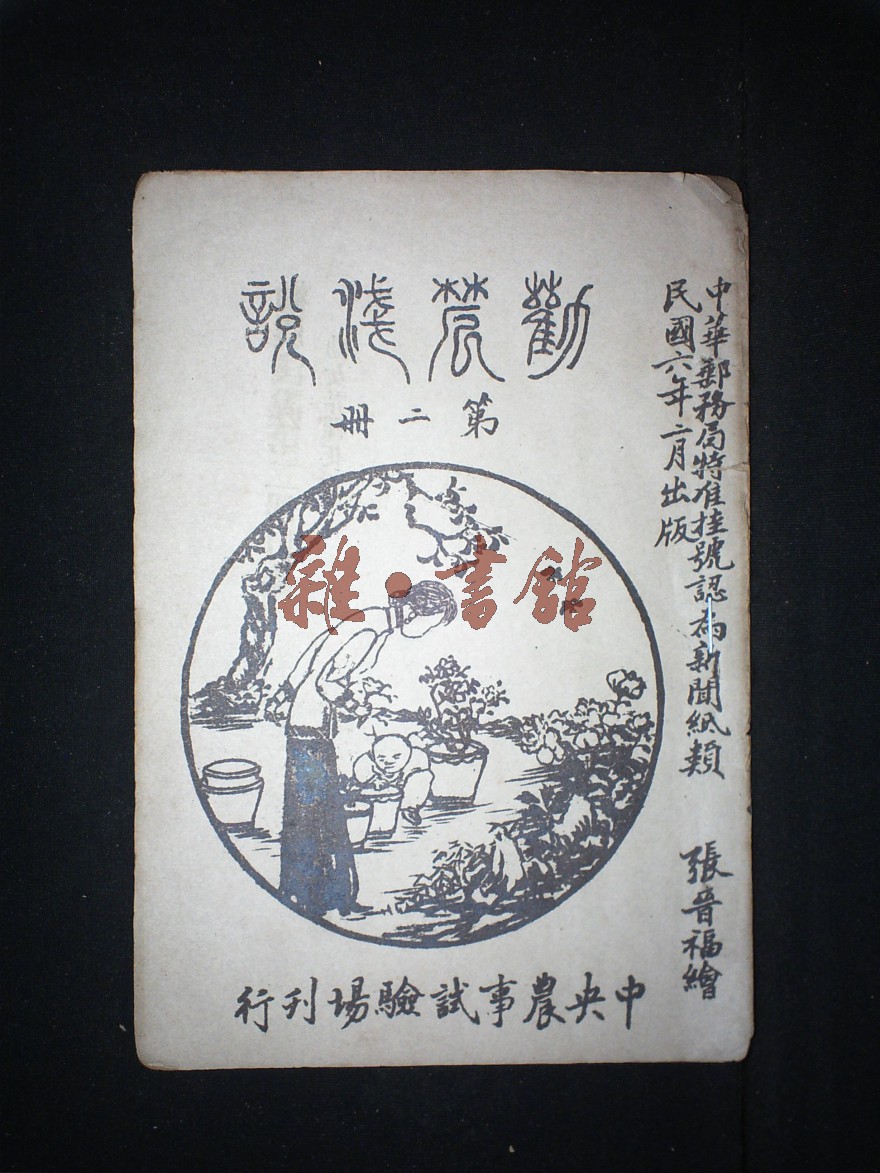 中華郵務局特准挂號認為新聞紙類
民國六年二月出版
張晉福繪
勸農淺說
第二冊
雜·書館
中央農事試驗場刊行